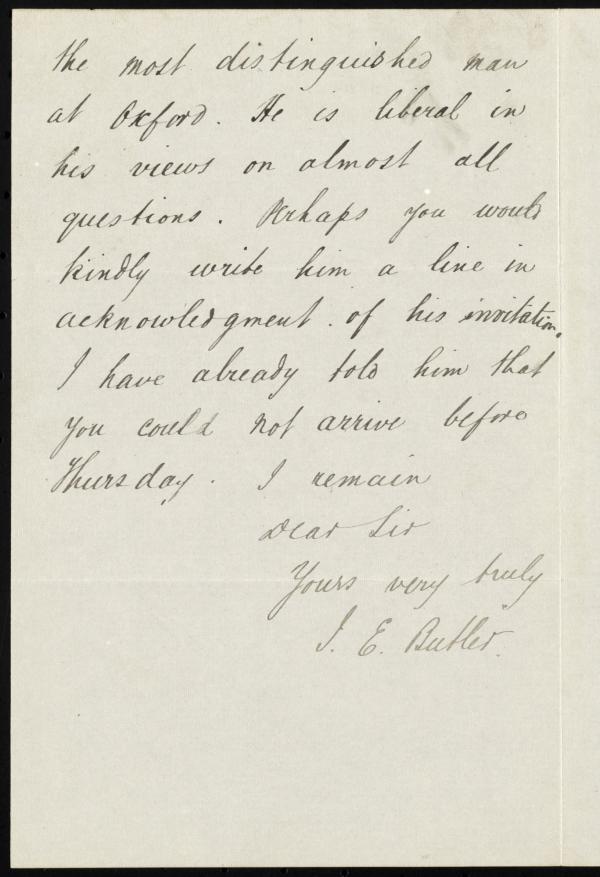 the most distinguished man
at Oxford. He is liberal in
his views on almost all
questions. Perhaps you would
kindly write him a line in
acknowledgment of his invitation.
I have already told him that
you could not arrive before
Thursday. I remain
Dear Sir
Yours very truly
J. E. Butler.